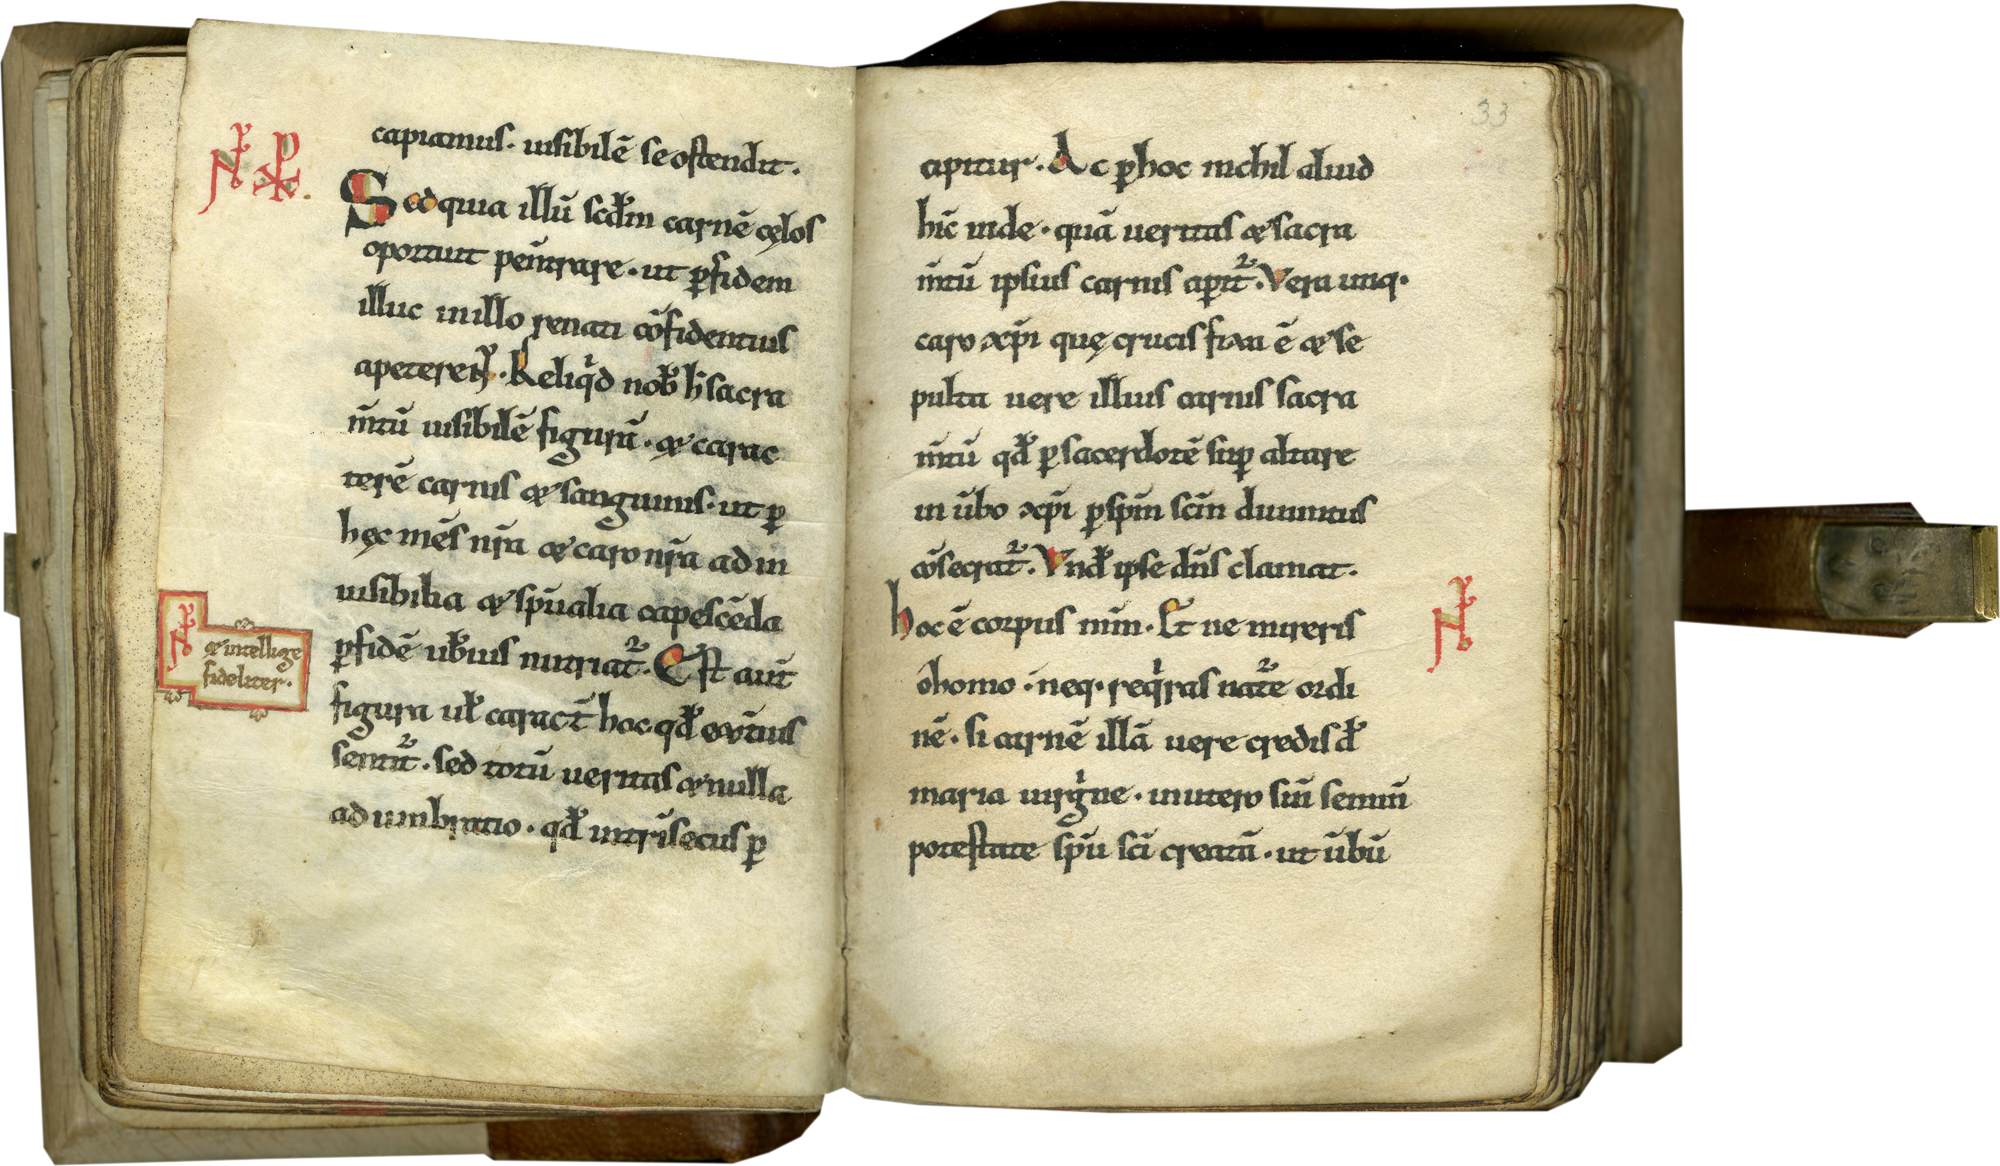 capiamus. uisibilē se ostendit.
Sed quia illū scdm̄ carnē cęlos
oportuit penītrare. ut ꝑ fidem
illuc in illo renati cōfidentius
apeterent̄. Reliqͥd nob̄ h̄ sacra
m̄tū uisibilē figurā. & carac
terē carnis & sanguinis. ut ꝑ
hęc mēs nr̄a & caro nr̄a ad in
uisibilia & sp̄ualia capescēda
ꝑ fidē ub̄ius nutriat᷑. Est aut̄
figura ul̄ caract̄ hoc qd̄ ext̄ius
sentit᷑. sed totū ueritas & nulla
adumbratio. qd̄ intrīsecus ꝑ
N
& intellige
fideliter.
33
apitur. Ac ꝑ hoc nichil aliud
hīc inde. quā ueritas & sacra
m̄tū ipsius carnis aꝑit᷑. Vera utiq.
caro xp̄i quę crucifixa ē & se
pulta uere illius carnis sacra
m̄tū qd̄ ꝑ sacerdotē suꝑ altare
in ūbo xp̄i ꝑ sp̄m sc̄m diuinitus
cōsecrat᷑. Vnd̄ ipse dn̄s clamat.
hoc ē corpus mm̄. Et ne mireris
ō homo. neq. reqͥras nat᷑e ordi
nē. si carnē illā uere credis d̄
maria uirgͥne. in utero sin̄ semin̄
potestate sp̄u sc̄i creatā. ut ūbū
N